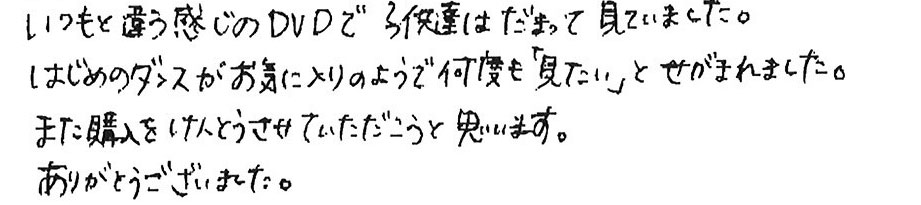 いつもと違う感じのDVDで子供達はだまって見ていました。
はじめのダンスがお気に入りのようで何度も「見たい」とせがまれました。
また購入をけんとうさせていただこうと思います。
ありがとうございました。